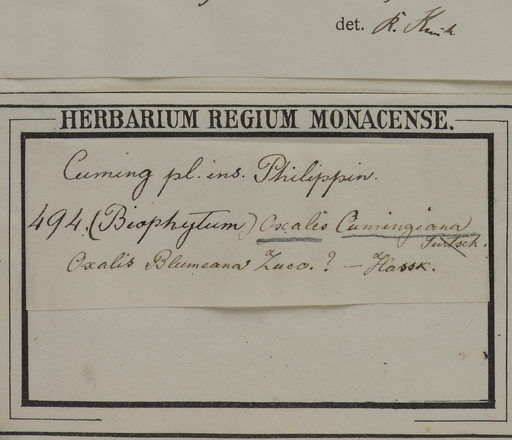 det. R. Knuth
HERBARIUM REGIUM MONACENSE.
Cuming pl. ins. Philippin.
494. (Biophytum) Oxalis Cumingiana
Turtsch.
Oxalis Blumeana Zucc. ? — Hassk.